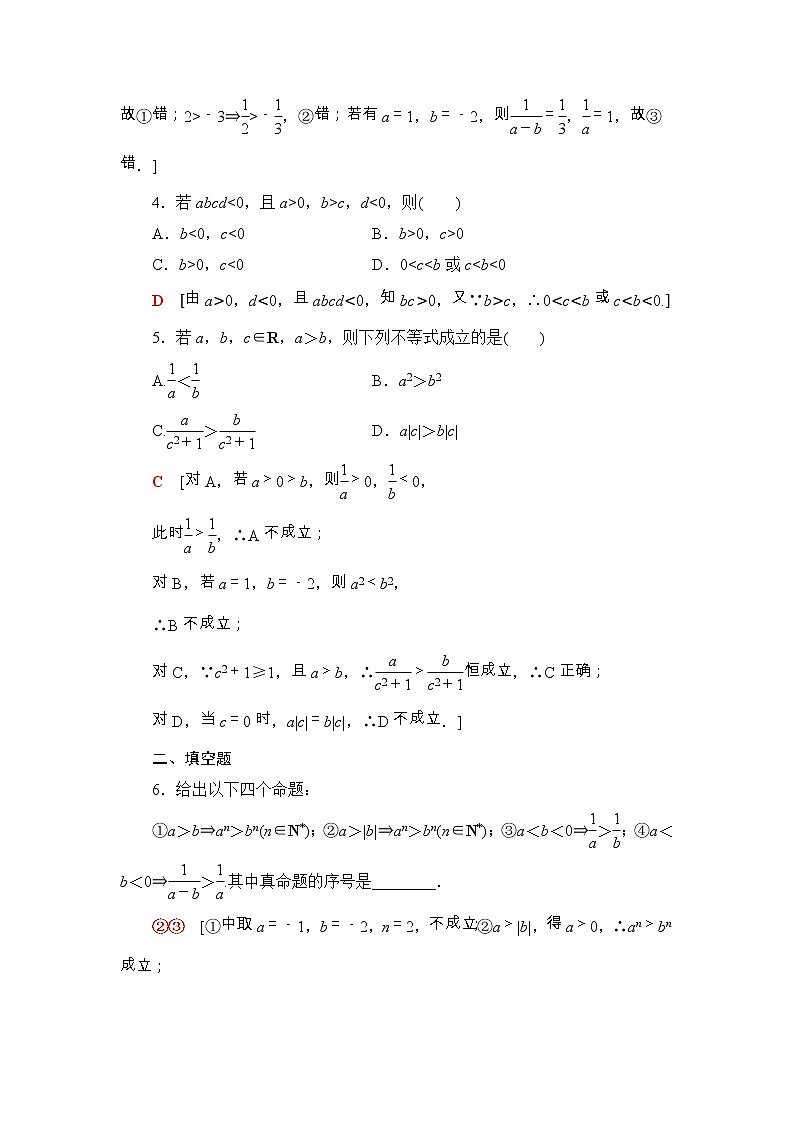 故①错；2>﹣3⇒1/2>﹣1/3，②错；若有 a＝1，b＝﹣2，则1/(a－b)＝1/3，1/a＝1，故③
错．]
4．若 abcd<0，且 a>0，b>c，d<0，则(　　)
A．b<0，c<0　　B．b>0，c>0
C．b>0，c<0　　D．0<c<b 或 c<b<0
D　[由 a>0，d<0，且 abcd<0，知 bc>0，又∵b>c，∴0<c<b 或 c<b<0.]
5．若 a，b，c∈R，a＞b，则下列不等式成立的是(　　)
A.1/a＜1/b　　B．a²＞b²
C.a/(c²＋1)＞b/(c²＋1)　　D．a|c|＞b|c|
C　[对 A，若 a＞0＞b，则1/a＞0，1/b＜0，
此时1/a＞1/b，∴A 不成立；
对 B，若 a＝1，b＝﹣2，则 a²＜b²，
∴B 不成立；
对 C，∵c²＋1≥1，且 a＞b，∴a/(c²＋1)＞b/(c²＋1)恒成立，∴C 正确；
对 D，当 c＝0 时，a|c|＝b|c|，∴D 不成立．]
二、填空题
6．给出以下四个命题：
①a＞b⇒aⁿ＞bⁿ(n∈N*)；②a＞|b|⇒aⁿ＞bⁿ(n∈N*)；③a＜b＜0⇒1/a＞1/b；④a＜
b＜0⇒1/(a－b)＞1/a.其中真命题的序号是________．
②③　[①中取 a＝﹣1，b＝﹣2，n＝2，不成立；②a＞|b|，得 a＞0，∴aⁿ＞bⁿ
成立；